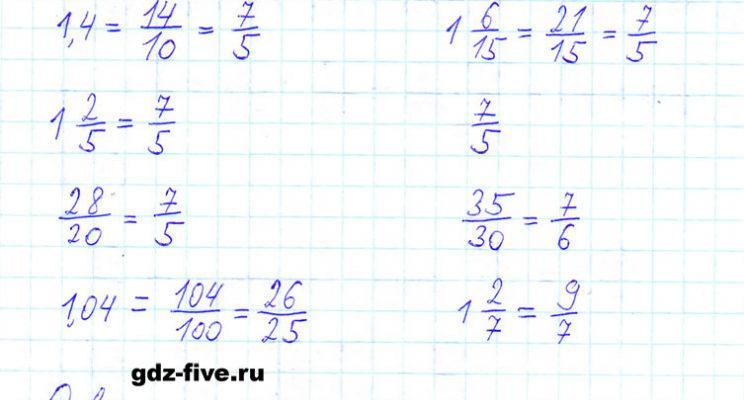 1,4 = 14/10 = 7/5
1 6/15 = 21/15 = 7/5
1 2/5 = 7/5
7/5
28/20 = 7/5
35/30 = 7/6
1,04 = 104/100 = 26/25
1 2/7 = 9/7
gdz-five.ru